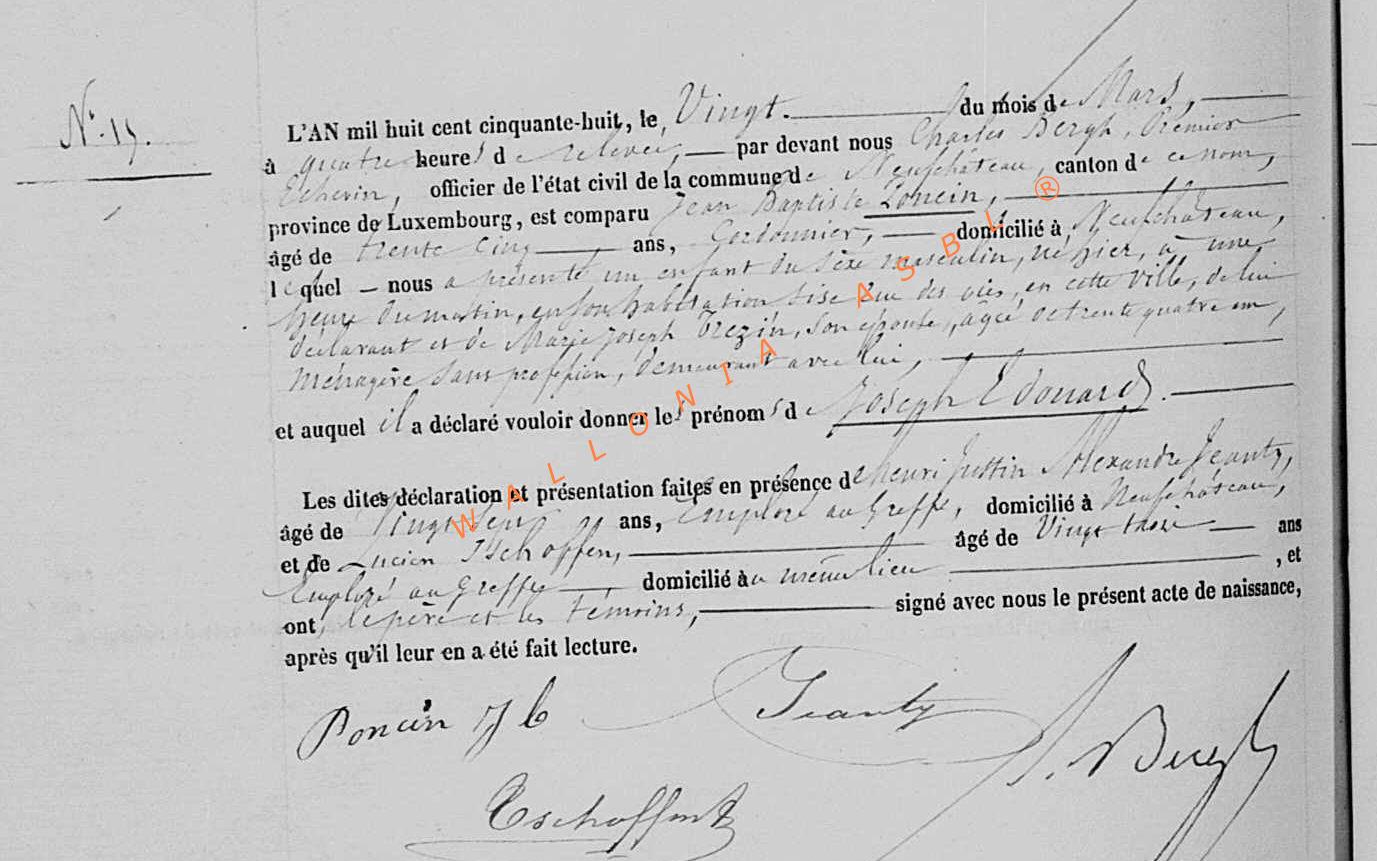 N° 19.
L'AN mil huit cent cinquante-huit, le Vingt. du mois de Mars,
à quatre heures de relevée, par devant nous Charles Bergh, Premier
Echevin, officier de l'état civil de la commune de Neufchâteau, canton de ce nom,
province de Luxembourg, est comparu Jean Baptiste Poncin,
âgé de trente cinq ans, Cordonnier, domicilié à Neufchâteau,
lequel nous a présenté un enfant du sexe masculin, né hier, à une
heure du matin, en son habitation sise rue des in, en cette ville, de lui
déclarant et de Marie Joseph Trezin, son épouse, agée de trente quatre an,
ménagère sans profession, demeurant avec lui,
et auquel il a déclaré vouloir donner les prénoms de Joseph Edouard.
Les dites déclaration et présentation faites en présence de henri Justin Alexandre Jeanty,
âgé de Vingt ans, Employé au Greffe, domicilié à Neufchâteau,
et de Lucien Tschoffen, âgé de Vingt trois ans
Employé au Greffe domicilié au même lieu , et
ont, le père et les témoins, signé avec nous le présent acte de naissance,
après qu'il leur en a été fait lecture.
Poncin J b Jeanty Bergh
Tschoffen
WALLONIA ASBL ®